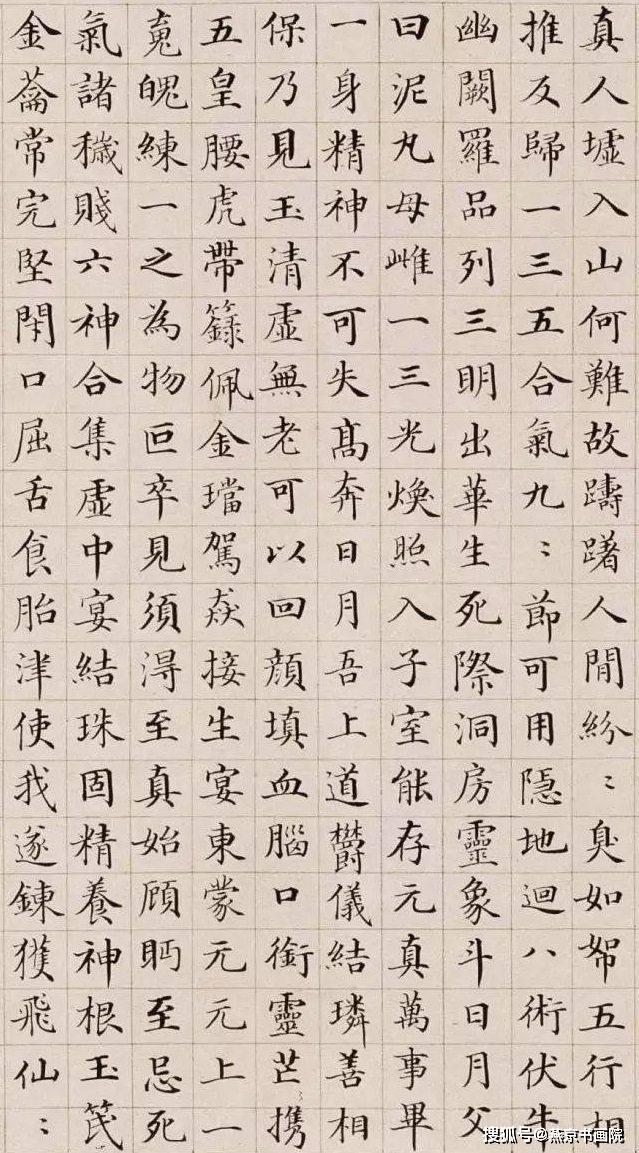 真人墟入山何難故躊躇人間紛〻臭如帤五行相
推反歸一三五合氣九〻節可用隱地迴八術伏牛
幽闕羅品列三明出華生死際洞房靈象斗日月父
曰泥丸母雌一三光煥照入子室能存元真萬事畢
一身精神不可失高奔日月吾上道欝儀結璘善相
保乃見玉清虛無老可以回顏填血腦口銜靈芒携
五皇腰虎帶籙佩金璫駕焱接生宴東蒙元元上一
䰟魄練一之為物叵卒見須得至真始顧眄至忌死
氣諸穢賤六神合集虛中宴結珠固精養神根玉笢
金籥常完堅閇口屈舌食胎津使我遂鍊獲飛仙〻
搜狐号@燕京书画院